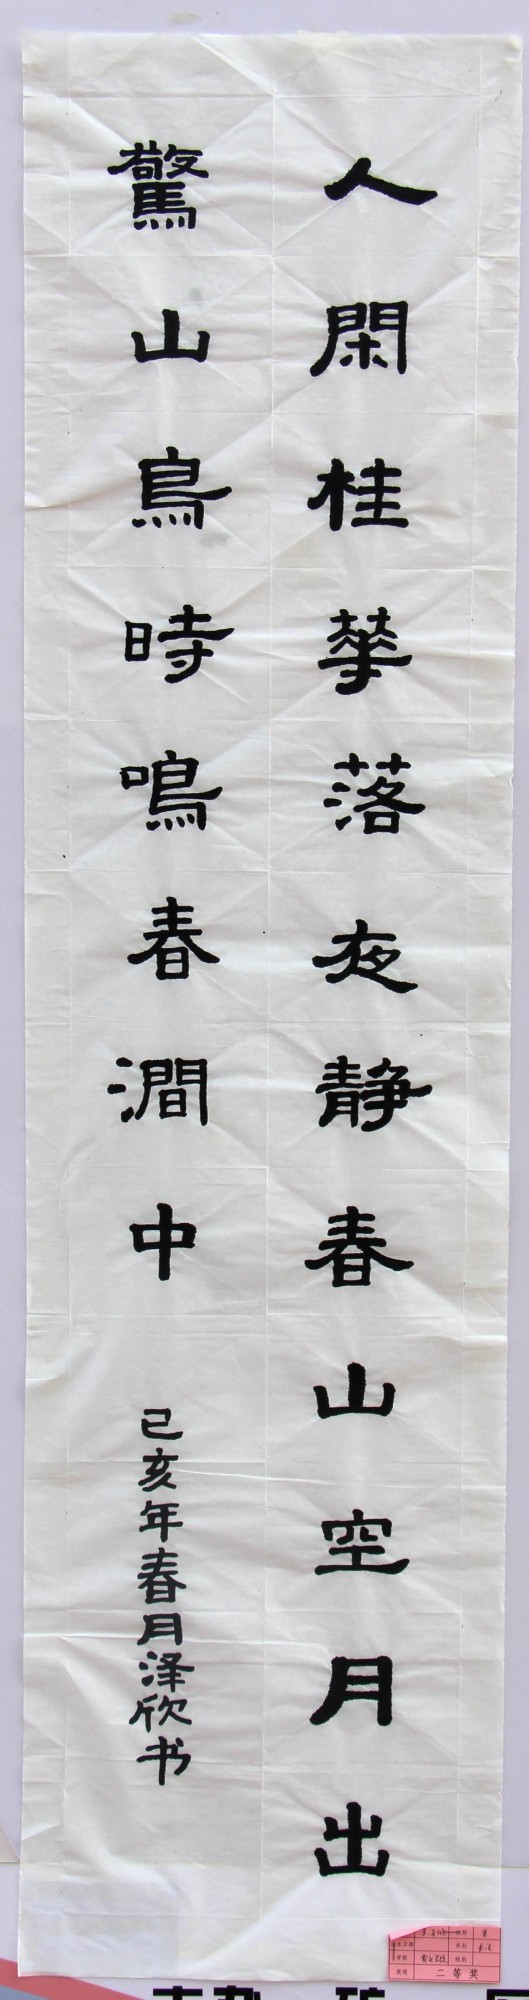 人閑桂華落夜静春山空月出
驚山鳥時鳴春澗中
己亥年春月泽欣书
二等奖